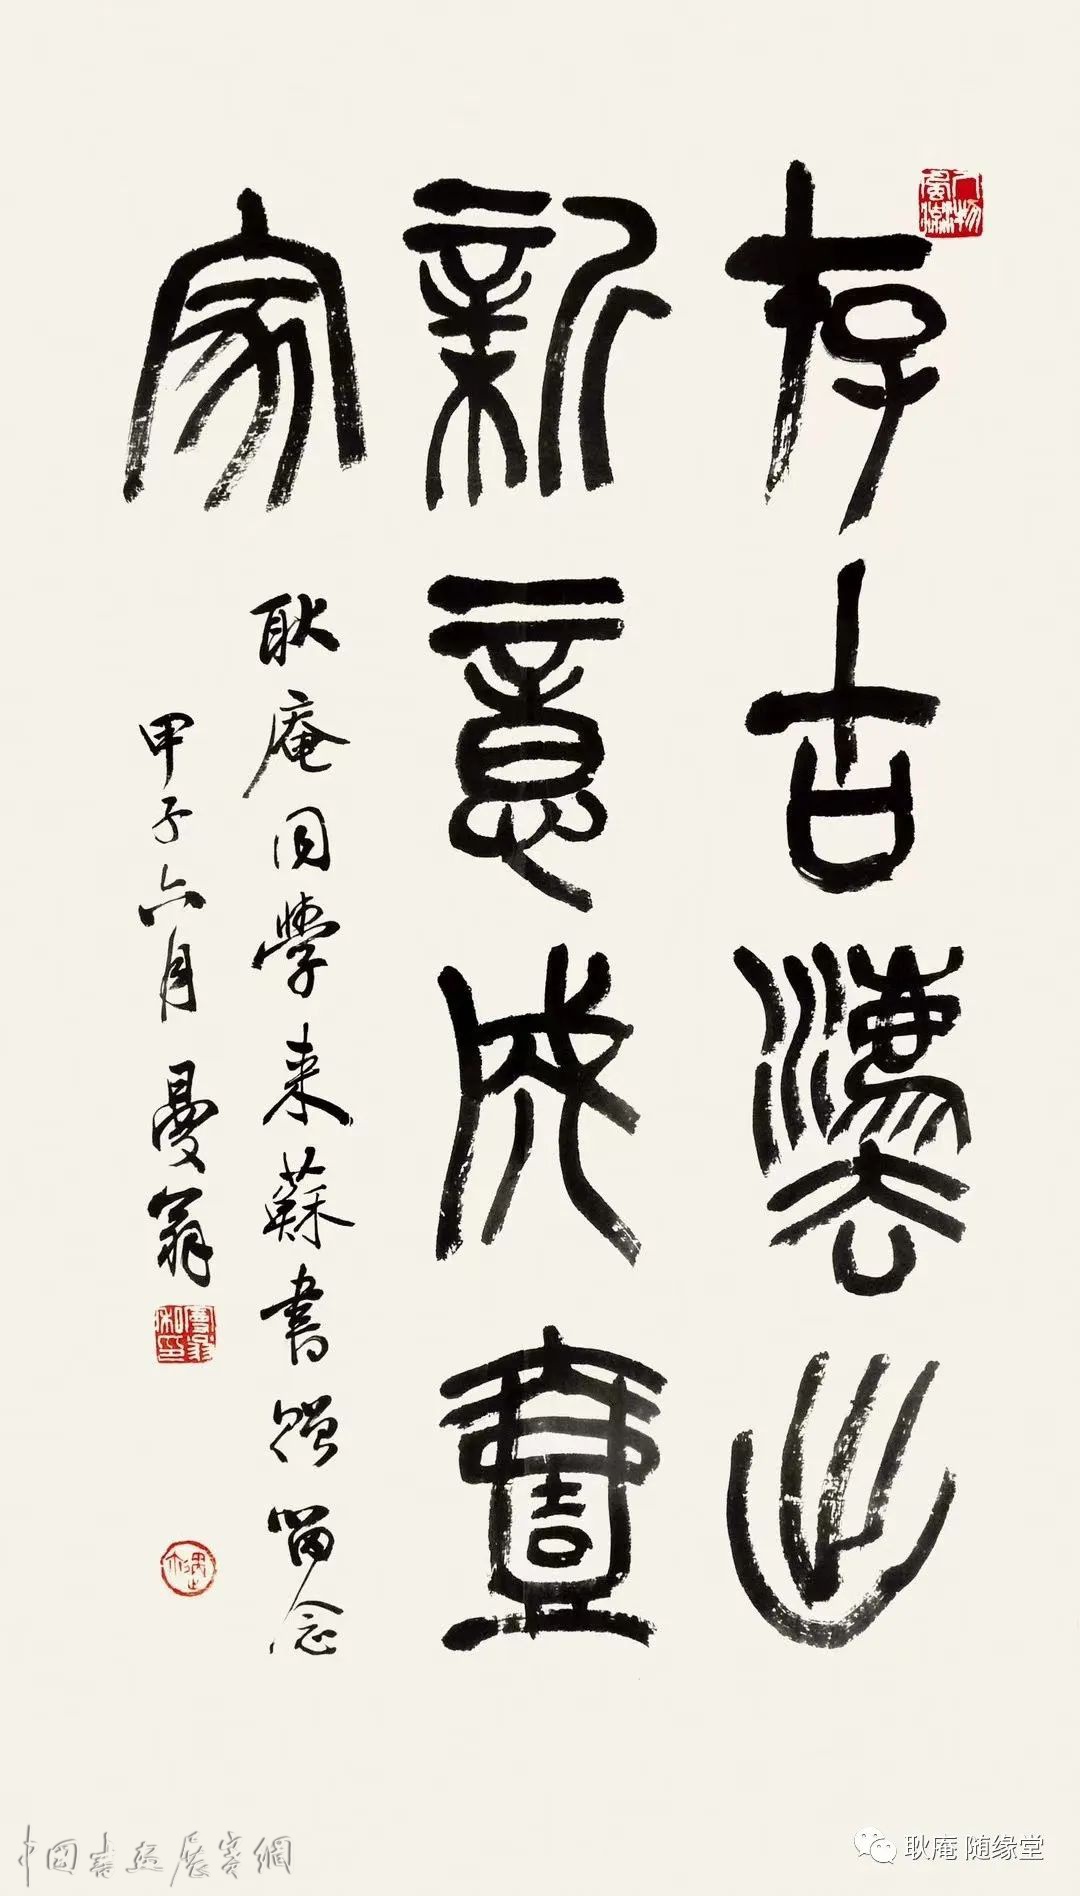 存古灋出
新意成畫
家
耿庵同學来蘇書贈留念
甲子六月曼翁
中國書畫展賽網
耿庵 随缘堂